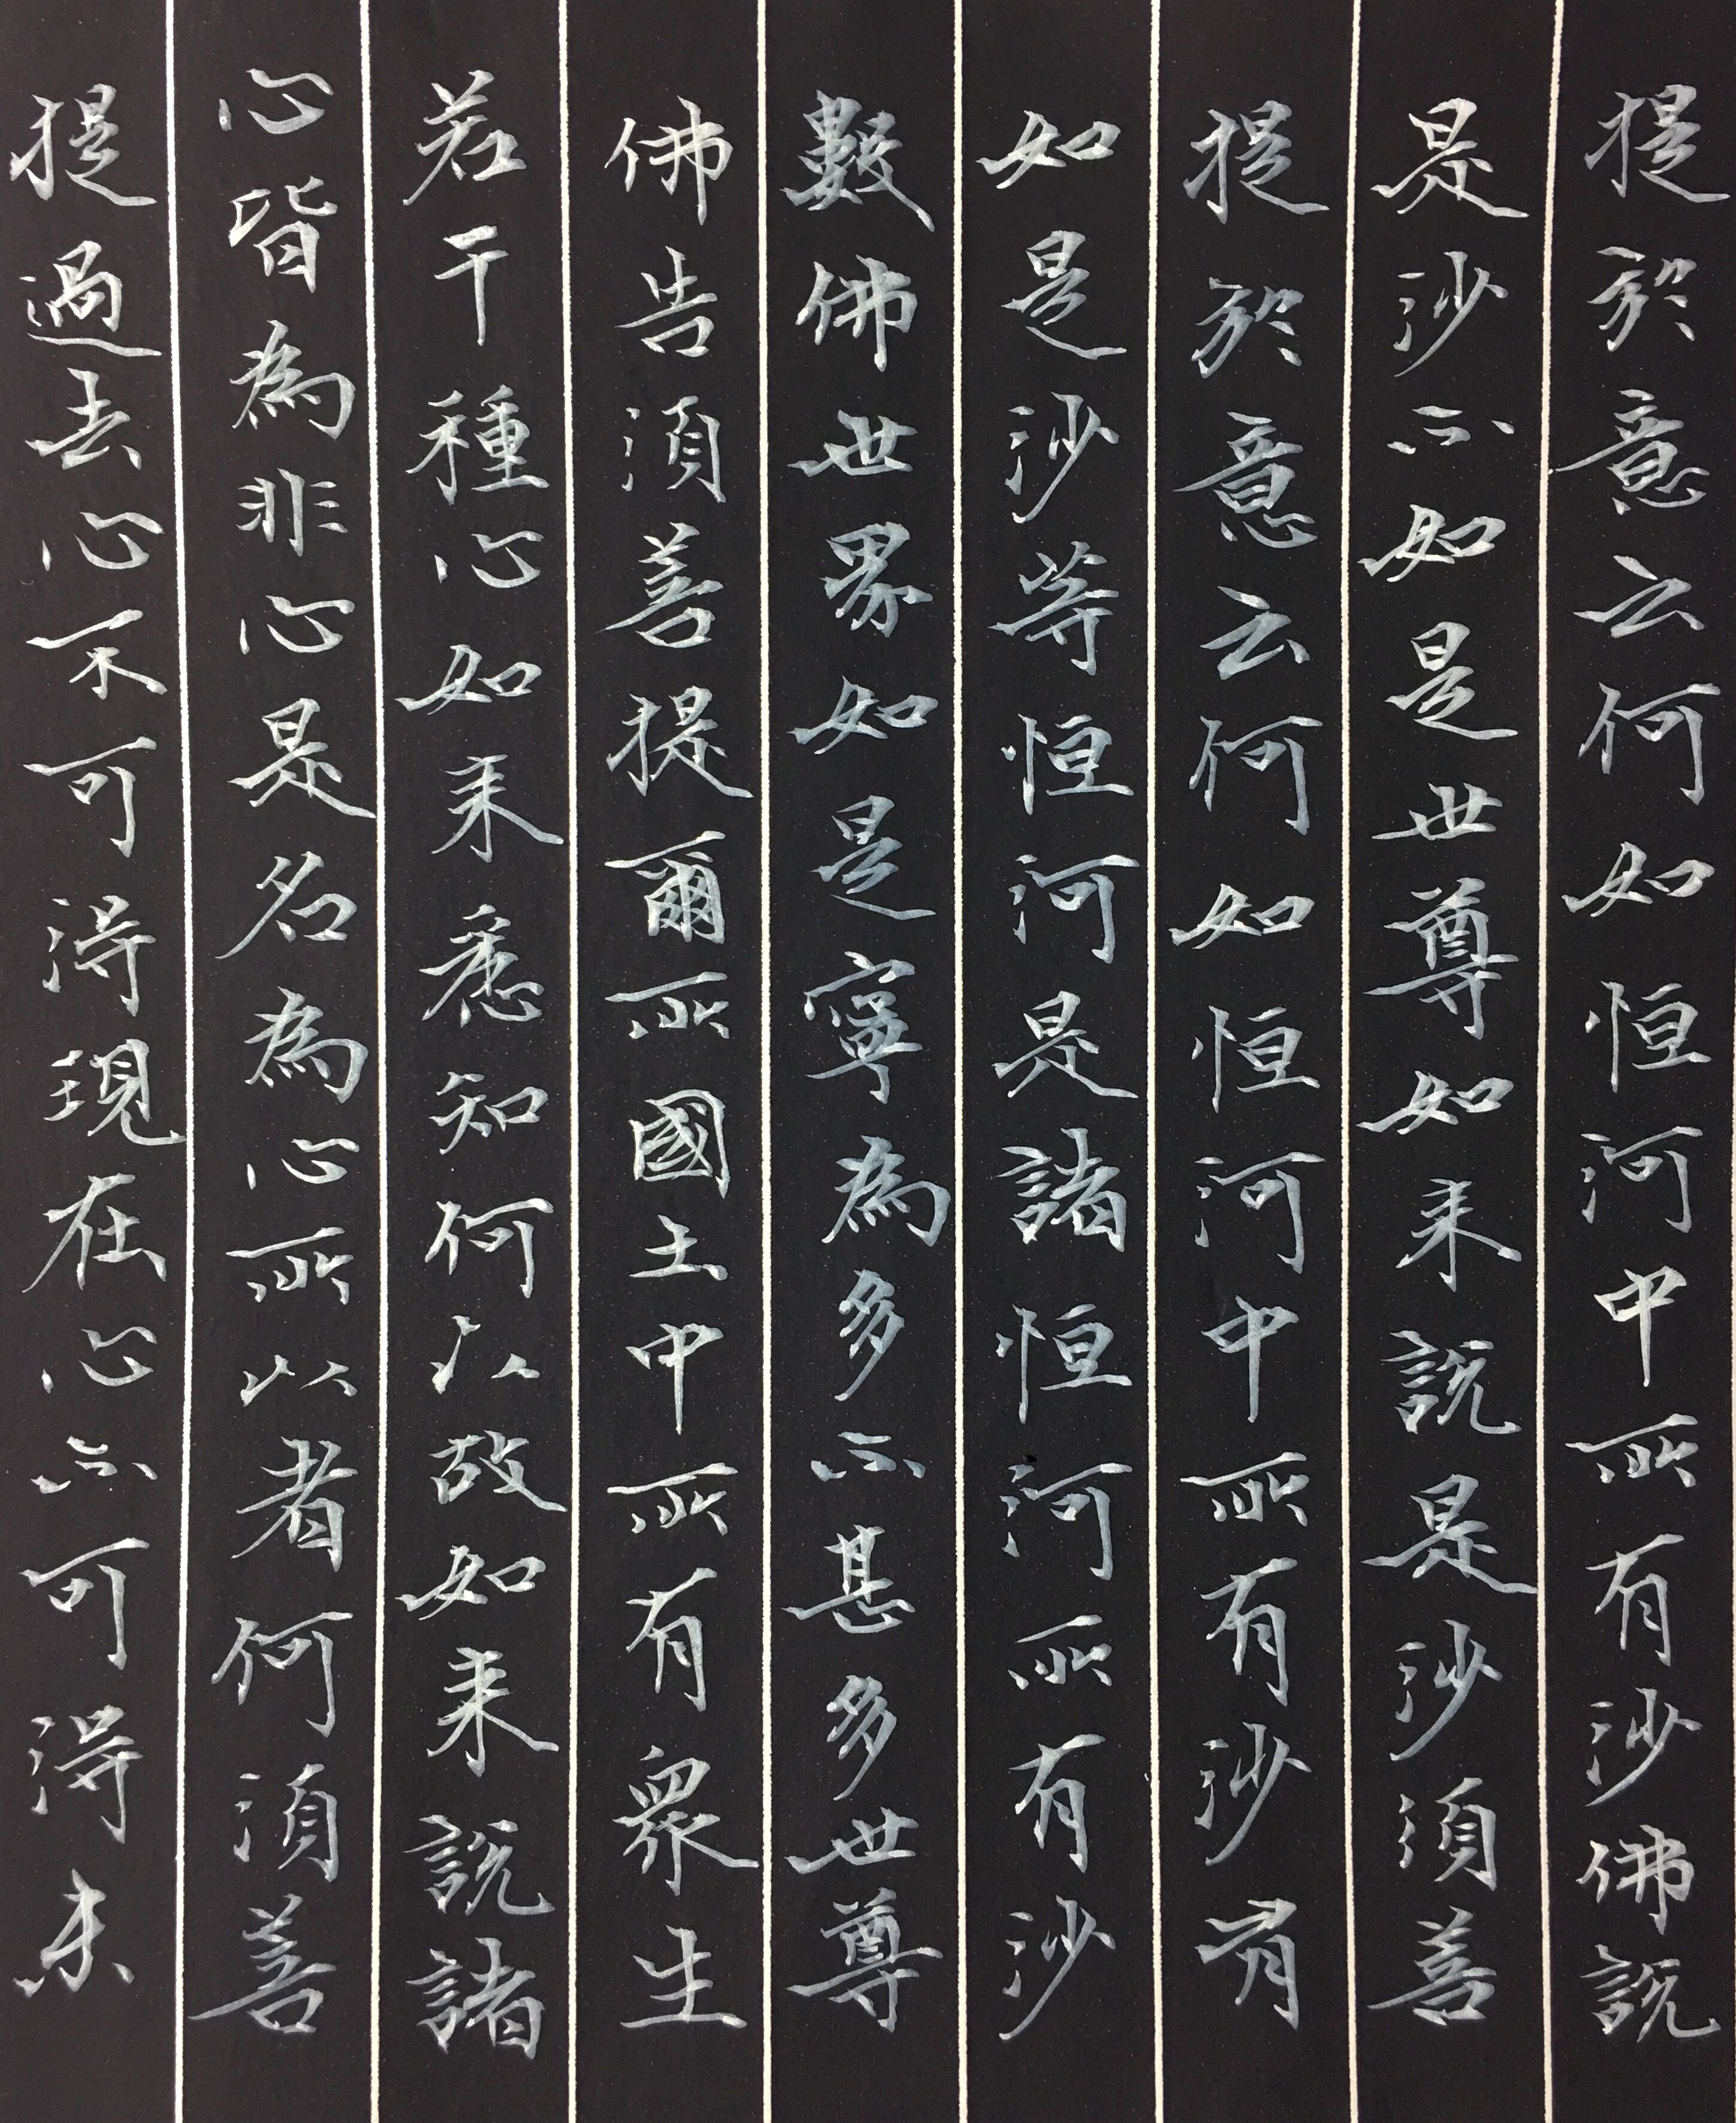 提於意云何如恒河中所有沙佛說
是沙不如是世尊如来說是沙須善
提於意云何如恒河中所有沙有
如是沙等恒河是諸恒河所有沙
數佛世界如是寧為多不甚多世尊
佛告須善提爾所國土中所有眾生
若干種心如来悉知何以故如来說諸
心皆為非心是名為心所以者何須善
提過去心不可得現在心不可得未